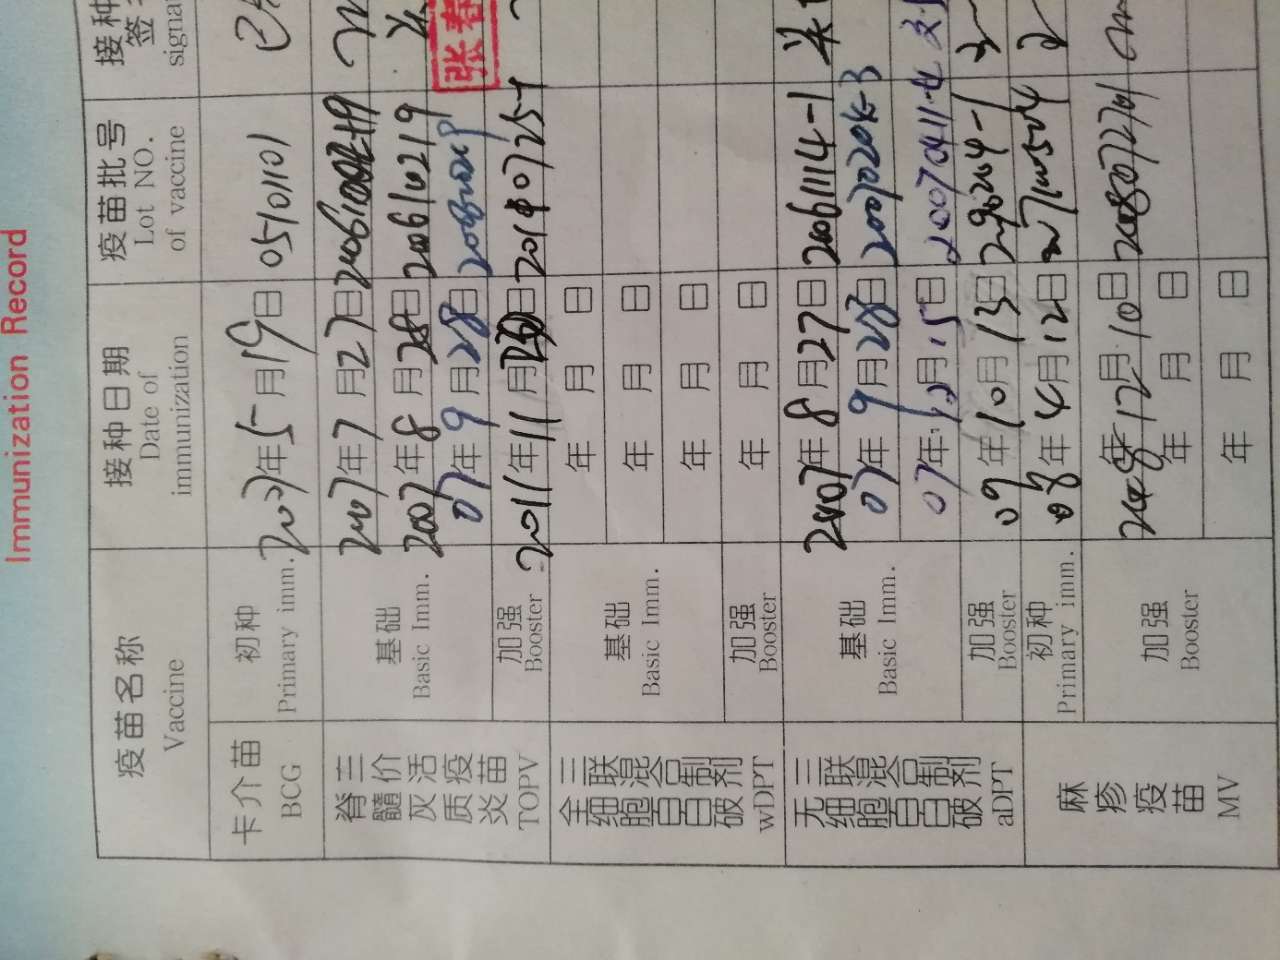 Immunization Record
疫苗名称
Vaccine
接种日期
Date of
immunization
疫苗批号
Lot NO.
of vaccine
接种
签
signa
卡介苗
BCG
初种
Primary imm.
2007年5月19日
05101101
脊髓灰质炎
三价活疫苗
TOPV
基础
Basic Imm.
2007年7月27日
2007年8月28日
20061219
07年9月28日
张春
加强
Booster
2011年11月 日
全细胞百白破
三联混合制剂
wDPT
基础
Basic Imm.
年 月 日
年 月 日
年 月 日
加强
Booster
年 月 日
无细胞百白破
三联混合制剂
aDPT
基础
Basic Imm.
2007年8月27日
20061114-1
07年9月28日
07年12月15日
加强
Booster
09年10月13日
麻疹疫苗
MV
初种
Primary imm.
08年4月12日
加强
Booster
年12月10日
年 月 日
年 月 日